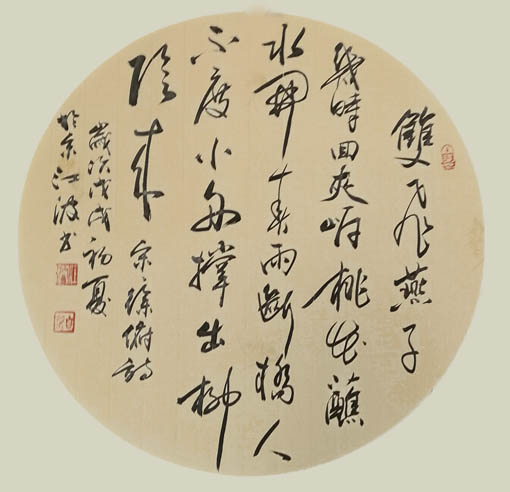 雙飛燕子
幾時回夾岸桃花蘸
水開春雨斷橋人
不度小舟撐出柳
陰來 宋徐俯詩
歲次戊戌初夏
於京江波书